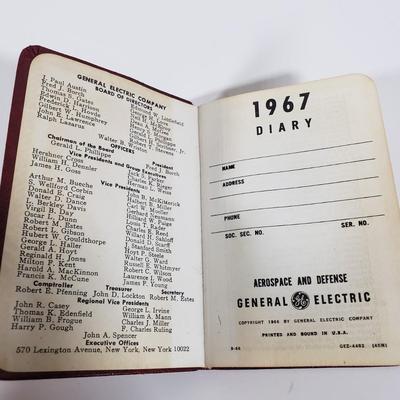 GENERAL ELECTRIC COMPANY
BOARD OF DIRECTORS
J. Paul Austin
Fred J. Borch
Thomas S. Gates
Edwin D. Harrison
Frederick L. Hovde
Gilbert W. Humphrey
John E. Lawrence
Ralph Lazarus
Edmund W. Littlefield
Walter B.
OFFICERS
Chairman of the Board President
Gerald L. Phillippe Fred J. Borch
Vice Presidents and Group Executives
Hershner Cross Jack S. Parker
William H. Dennler Charles K. Rieger
James H. Goss Herman L. Weiss
Vice Presidents
Arthur M. Bueche
S. Wellford Corbin
Donald E. Craig
Walter D. Dance
L. Berkley Davis
Virgil B. Day
Oscar L. Dunn
Robert M. Estes
Robert L. Gibson
Hubert W. Gouldthorpe
George L. Haller
Gerald A. Hoyt
Reginald H. Jones
Milton F. Kent
Harold A. MacKinnon
Francis K. McCune
John B. McKitterick
Halbert B. Miller
Carl W. Moeller
Gerhard Neumann
William W. Paige
Hilliard
Tom
Charles E. Reed
Willard H. Sahloff
Donald D. Scarff
J. Stanford Smith
Hoyt P. Steele
Walter G. Ward
Russell E. Whitmyer
Robert C. Wilson
Laurence I. Wood
James F. Young
Comptroller Treasurer Secretary
Robert E. Pfenning John D. Lockton Robert M. Estes
Regional Vice Presidents
John R. Casey George L. Irvine
Thomas K. Edenfield William A. Mann
William B. Frogue Charles J. Miller
Harry P. Gough F. Charles Ruling
John A. Spencer
Executive Offices
570 Lexington Avenue, New York, New York 10022
1967
DIARY
NAME
ADDRESS
PHONE
SOC. SEC. NO. SER. NO.
AEROSPACE AND DEFENSE
GENERAL GE ELECTRIC
COPYRIGHT 1966 BY GENERAL ELECTRIC COMPANY
PRINTED AND BOUND IN U.S.A.
9-66 GEZ-4482 (45M)